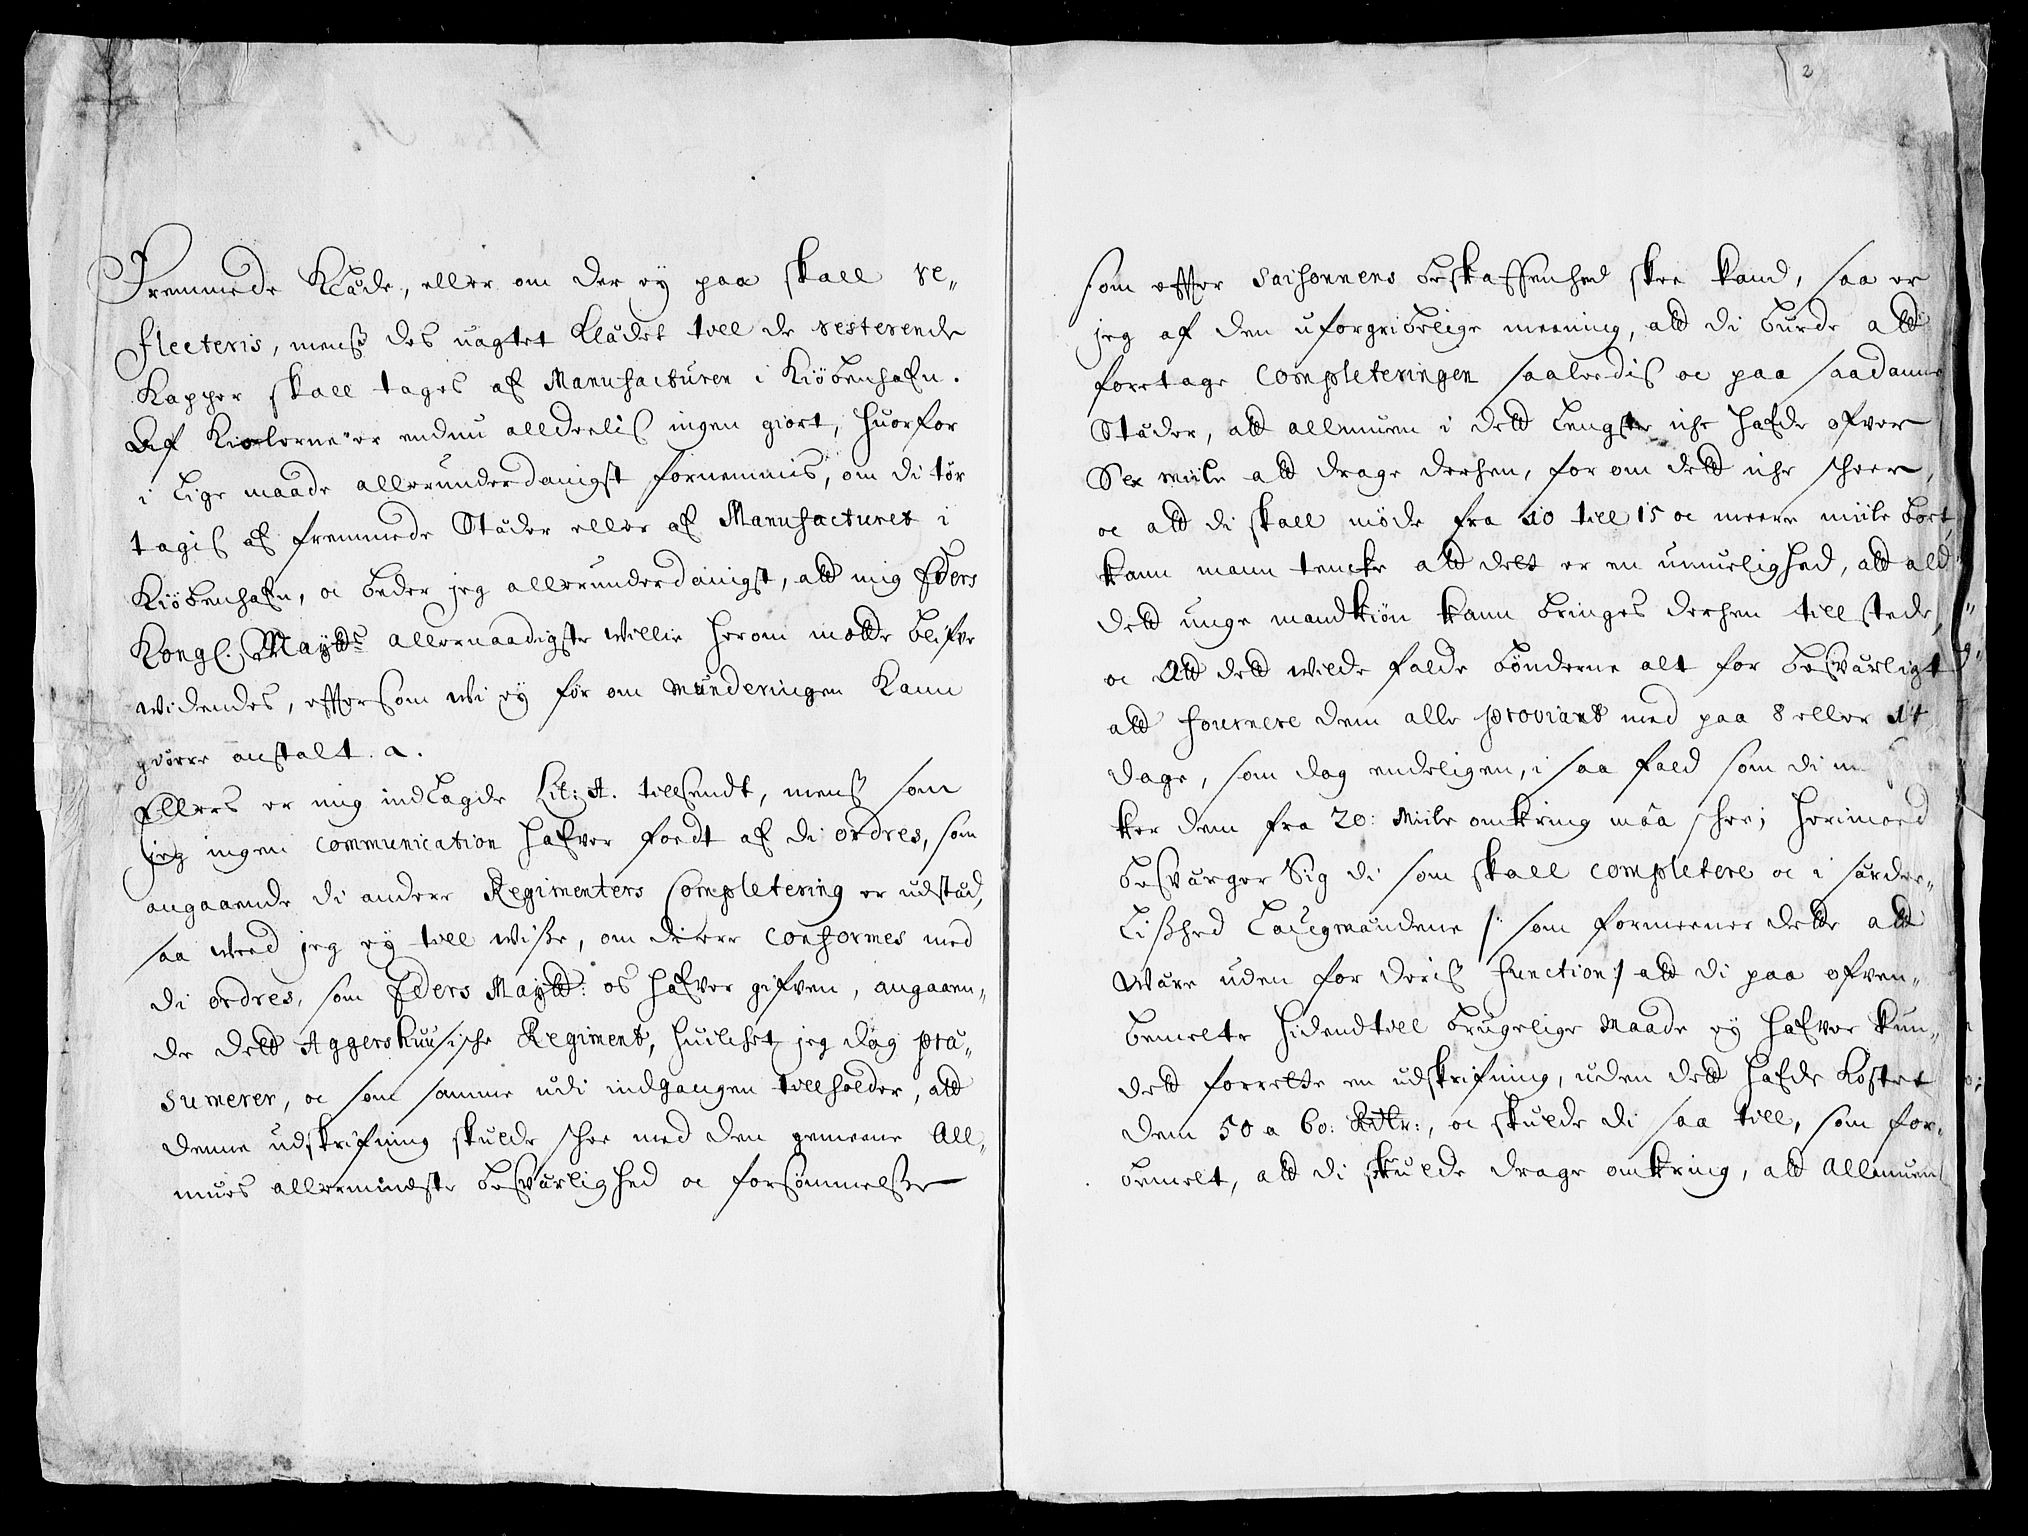 Fremmede Klæde, eller om der ey paa skall re„
flecteris, menß des uagtet Klædet till de resterende
Kapper skall tages af Manufacturen i Kiöbenhafn.
Af Kiolerne er endnu alldeelis ingen giort, huorfor
i Lige maade allerunderdanigst fornemmis, om di tör
tagis af fremmede Stæder eller af Manufacturet i
Kiöbenhafn, oc beder jeg allerunderdanigst, att mig Eders
Kongl. Maytts allernaadigste willie herom motte blifve
widendes, effterson wi ey för om Munderingen Kann
giörre anstalt. a.
Ellers er mig indlagde Lit: A. tillsendt, menß som
jeg ingen communication hafver foedt af di ordres, som
angaaende di andere Regimenters Completering er udstæd,
saa weed jeg ey till wisse, om di ere conformes med
di ordres, som Eders Maytt: os hafver gifven, angaaen„
de dett Aggershuusische Regiment, huilchet jeg dog præ„
sumerer, oc som samme udi indgangen tillholder, att
denne udskrifning skulde schee med den gemeene All„
mues allermindste besværlighed oc forsömmelsse
2
som effter saisonnens beskaffenhed skee kand, saa er
jeg af den uforgribelige meening, att di burde att
foretage Completeringen saaledis oc paa saadanne
Stæder, att allmuen i dett Lengste iche hafde ofver
Sex miile att drage derhen, for om dett iche scheer,
oc att di skall möde fra 10 till 15 oc meere miile bort,
kann mann tencke att dett er en umuelighed, att ald
dett unge mandkiön kann bringes derhen till stede,
oc Att dett wilde falde bönderne alt for besværligt
att fournere dem alle proviant med paa 8 eller 14
dage, som dog endeligen, i saa fald som di
ker dem fra 20: Miile omkring maa schee; herimoed
besværger Sig di som skall completere oc i særdee„
Lißhed Laugmændene /: som formeener dette att
Wære uden for deris function:/ att di paa ofven„
bemelte hidendtill brugelige Maade ey hafver kun„
dett forrette en udskrifning, uden dett hafde Kostet
dem 50 a 60: Rdlr:, oc skulde di saa till, som for„
bemelt, att di skulde drage omkring, att Allmuen